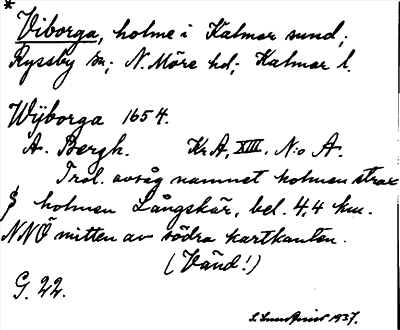 * Viborga, holme i Kalmar sund;
Ryssby sn; N. Möre hd; Kalmar l.
Wijborga 1654.
A. Bergh. KrA, XIII. N:o A.
Trol. avsåg namnet holmen strax
S holmen Långskär, bel. 4,4 km.
NNÖ mitten av södra kartkanten.
(Vänd!)
G. 22.
S. Lundqvist 1937.